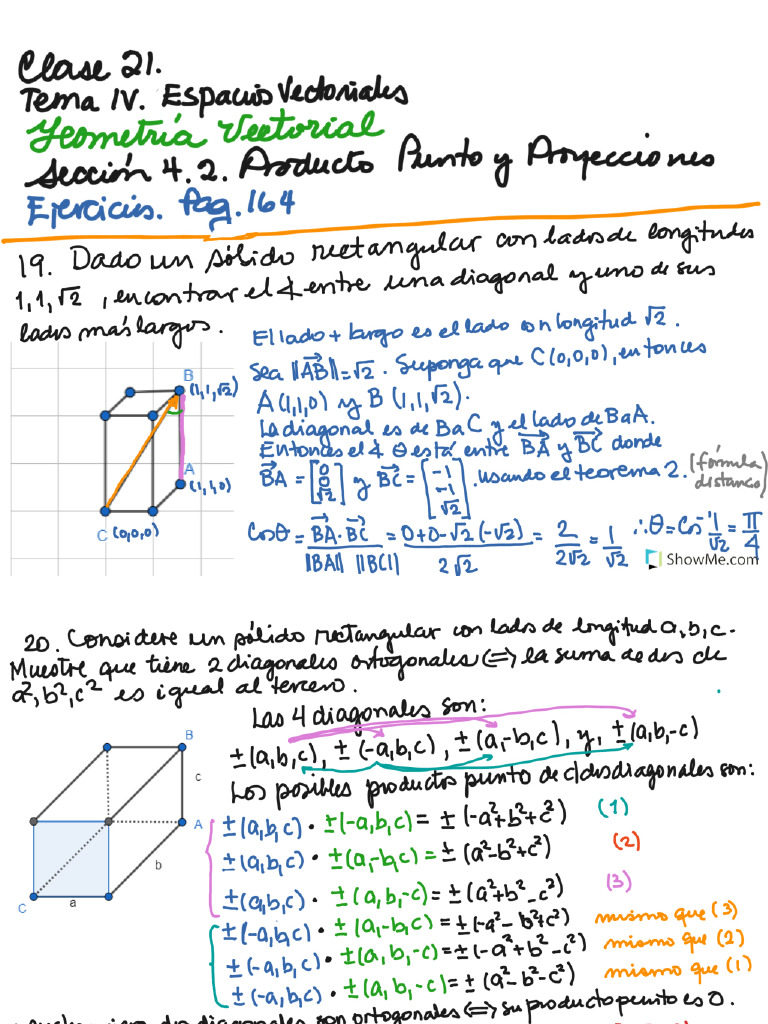 Clase 21.
Tema IV. Espacios Vectoriales
Geometría Vectorial
Sección 4.2. Producto Punto y Proyecciones
Ejercicios. Pag. 164
19. Dado un sólido rectangular con lados de longitudes
1, 1, √2, encontrar el ∡ entre una diagonal y uno de sus
lados más largos.
El lado + largo es el lado con longitud √2.
Sea ||AB|| = √2. Suponga que C(0,0,0), entonces
A(1,1,0) y B(1,1,√2).
La diagonal es de B a C y el lado de B a A.
Entonces el ∡ θ está entre BA y BC donde
BA = [0 0 √2] y BC = [-1 -1 √2]. usando el teorema 2. (fórmula distanco)
Cosθ = BA · BC / ||BA|| ||BC|| = 0+0-√2(-√2) / 2√2 = 2/2√2 = 1/√2 ∴ θ = Cos⁻¹ 1/√2 = π/4
B
(1,1,√2)
A
(1,1,0)
C (0,0,0)
ShowMe.com
20. Considere un sólido rectangular con lados de longitud a, b, c.
Muestre que tiene 2 diagonales ortogonales ⟺ la suma de dos de
a², b², c² es igual al tercero.
Las 4 diagonales son:
±(a,b,c), ±(-a,b,c), ±(a,-b,c), y, ±(a,b,-c)
Los posibles productos punto de c/dos diagonales son:
±(a,b,c) · ±(-a,b,c) = ±(-a²+b²+c²) (1)
±(a,b,c) · ±(a,-b,c) = ±(a²-b²+c²) (2)
±(a,b,c) · ±(a,b,-c) = ±(a²+b²-c²) (3)
±(-a,b,c) · ±(a,-b,c) = ±(-a²-b²+c²) mismo que (3)
±(-a,b,c) · ±(a,b,-c) = ±(-a²+b²-c²) mismo que (2)
±(-a,b,c) · ±(a,b,-c) = ±(a²-b²-c²) mismo que (1)
B
c
A
b
C
a
dos diagonales son ortogonales ⟺ su producto punto es 0.